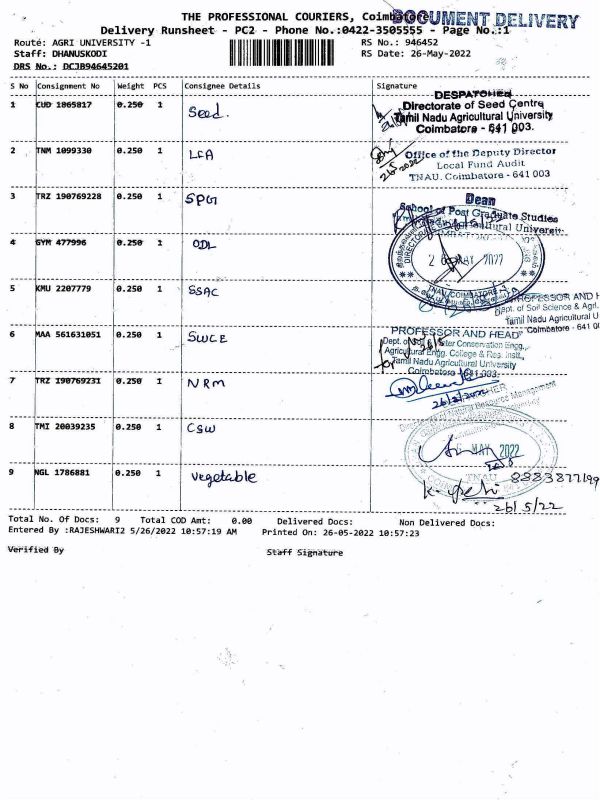 THE PROFESSIONAL COURIERS, Coimbatore
DOCUMENT DELIVERY
Delivery Runsheet - PC2 - Phone No.:0422-3505555 - Page No.:1
Route: AGRI UNIVERSITY -1 RS No.: 946452
Staff: DHANUSKODI RS Date: 26-May-2022
DRS No.: DCJB94645201
S No Consignment No Weight PCS Consignee Details Signature
1 CUD 1865817 0.250 1 Seed.
DESPATCHER
Directorate of Seed Centre
Tamil Nadu Agricultural University
Coimbatore - 641 003.
2 TNM 1099330 0.250 1 LFA
Office of the Deputy Director
Local Fund Audit
TNAU. Coimbatore - 641 003
26/5/2022
3 TRZ 190769228 0.250 1 SPGI
Dean
School of Post Graduate Studies
Agricultural University
4 GYM 477996 0.250 1 ODL
26 MAY 2022
TNAU, COIMBATORE
5 KMU 2207779 0.250 1 SSAC
PROFESSOR AND H
Dept. of Soil Science & Agri.
Tamil Nadu Agricultural U
Coimbatore - 641 00
6 MAA 561631051 0.250 1 SWCE
PROFESSOR AND HEAD
Dept. of Water Conservation Engg.,
Agricultural Engg. College & Res. Instt.,
Tamil Nadu Agricultural University
Coimbatore - 641 003.
7 TRZ 190769231 0.250 1 NRM
26/5/2022
Directorate of Natural Resource Management
8 TMI 20039235 0.250 1 CSW
MAY 2022
TNAU
9 NGL 1786881 0.250 1 Vegetable
26/5/22
Total No. Of Docs: 9 Total COD Amt: 0.00 Delivered Docs: Non Delivered Docs:
Entered By :RAJESHWARI2 5/26/2022 10:57:19 AM Printed On: 26-05-2022 10:57:23
Verified By Staff Signature